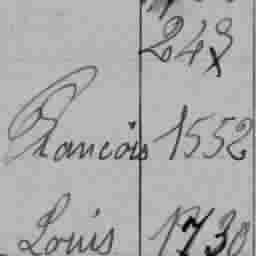 243
Francois 1552
Louis 1730